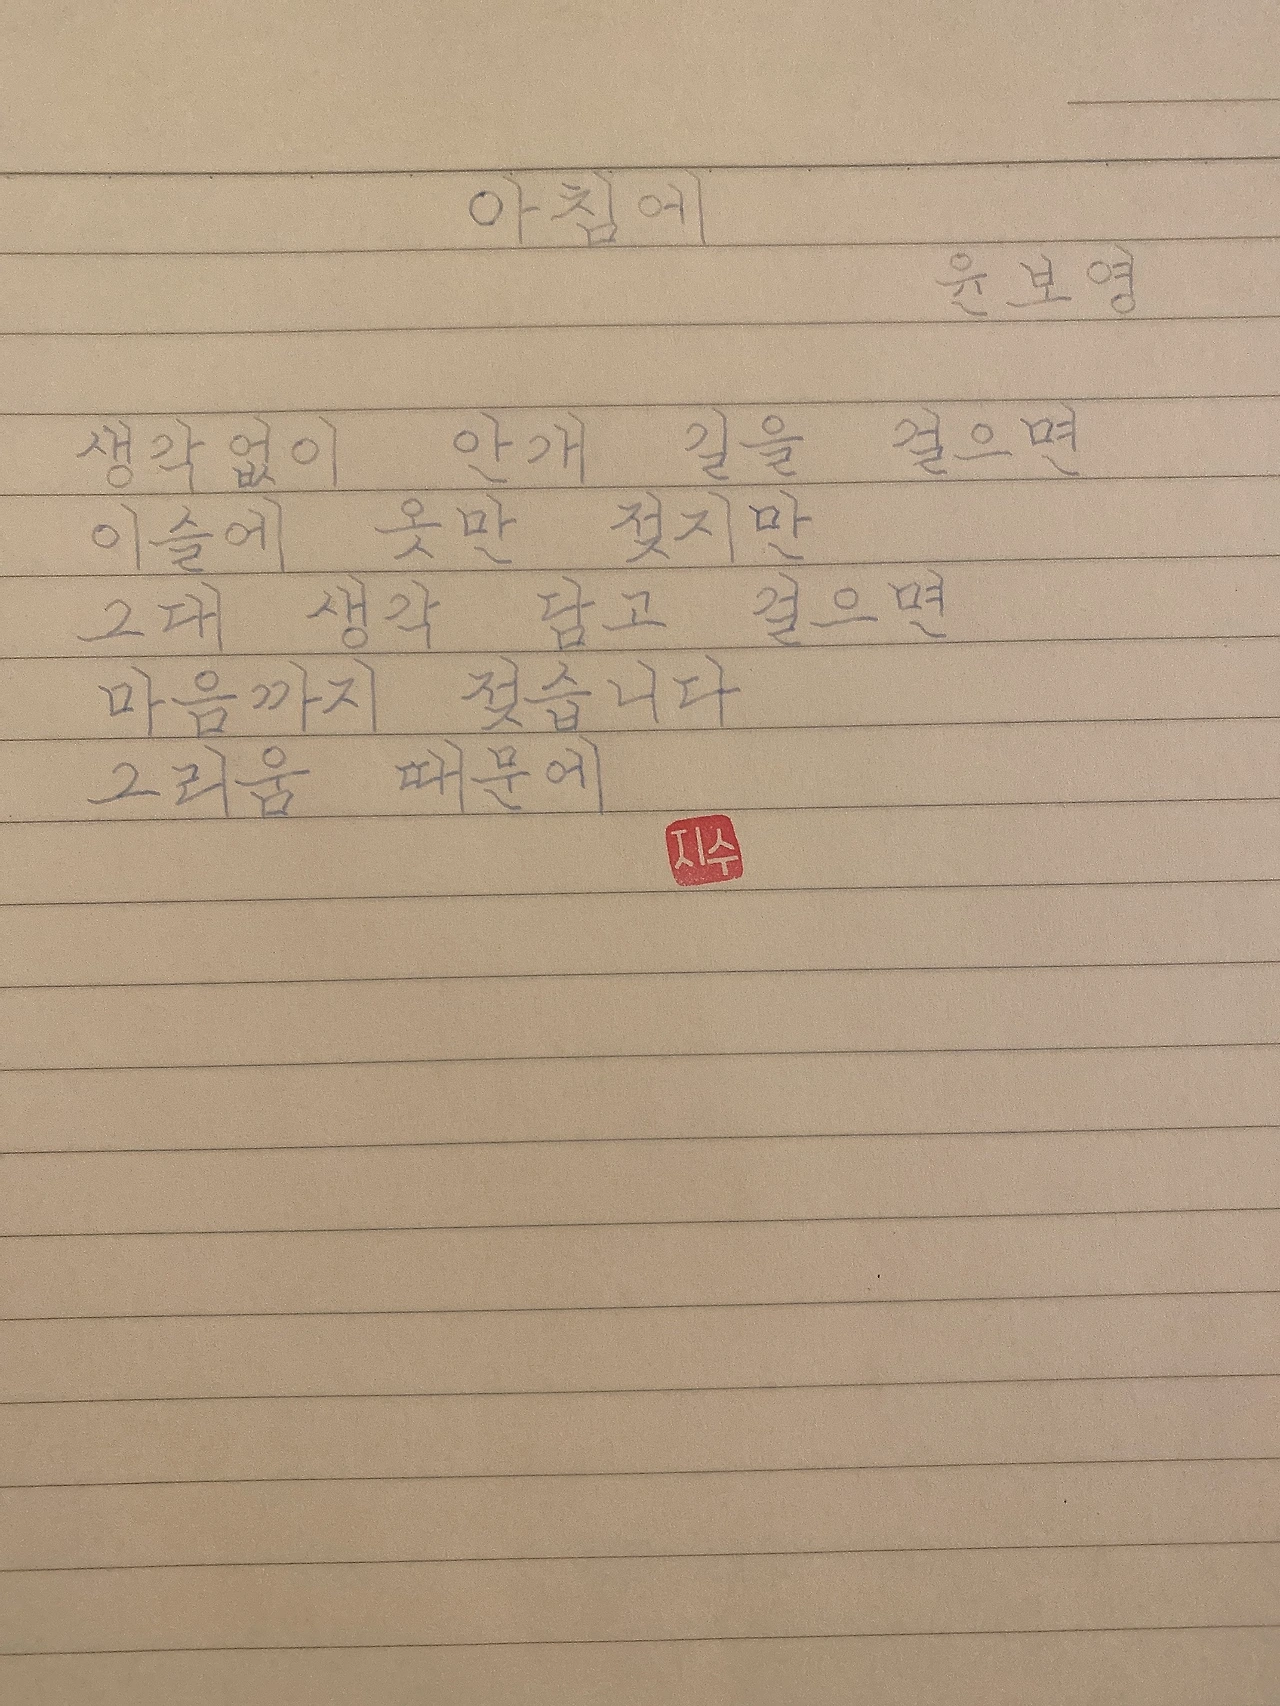 아침에
윤보영
생각없이 안개 길을 걸으면
이슬에 옷만 젖지만
그대 생각 담고 걸으면
마음까지 젖습니다
그리움 때문에
지수